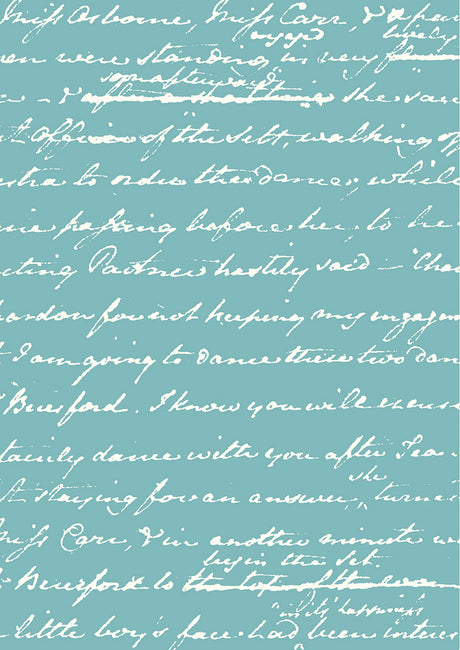 Miss Osborne, Miss Carr, & a pers
engaged lively
en were standing in very
soon afterwards
w - & after that time she "saw
t Officer of the Set, walking off
estra to order the dance, while
ne passing before her, to he
eting Partner hastily said - "Cha
pardon for not keeping my engagem
t I am going to dance these two dan
Beresford. I know you will excuse
tainly dance with you after Tea -
she
t staying for an answer, turned
Miss Carr, & in another minute wa
begin the set.
Beresford to the top of the room
"in its happiness
little boy's face had been interes